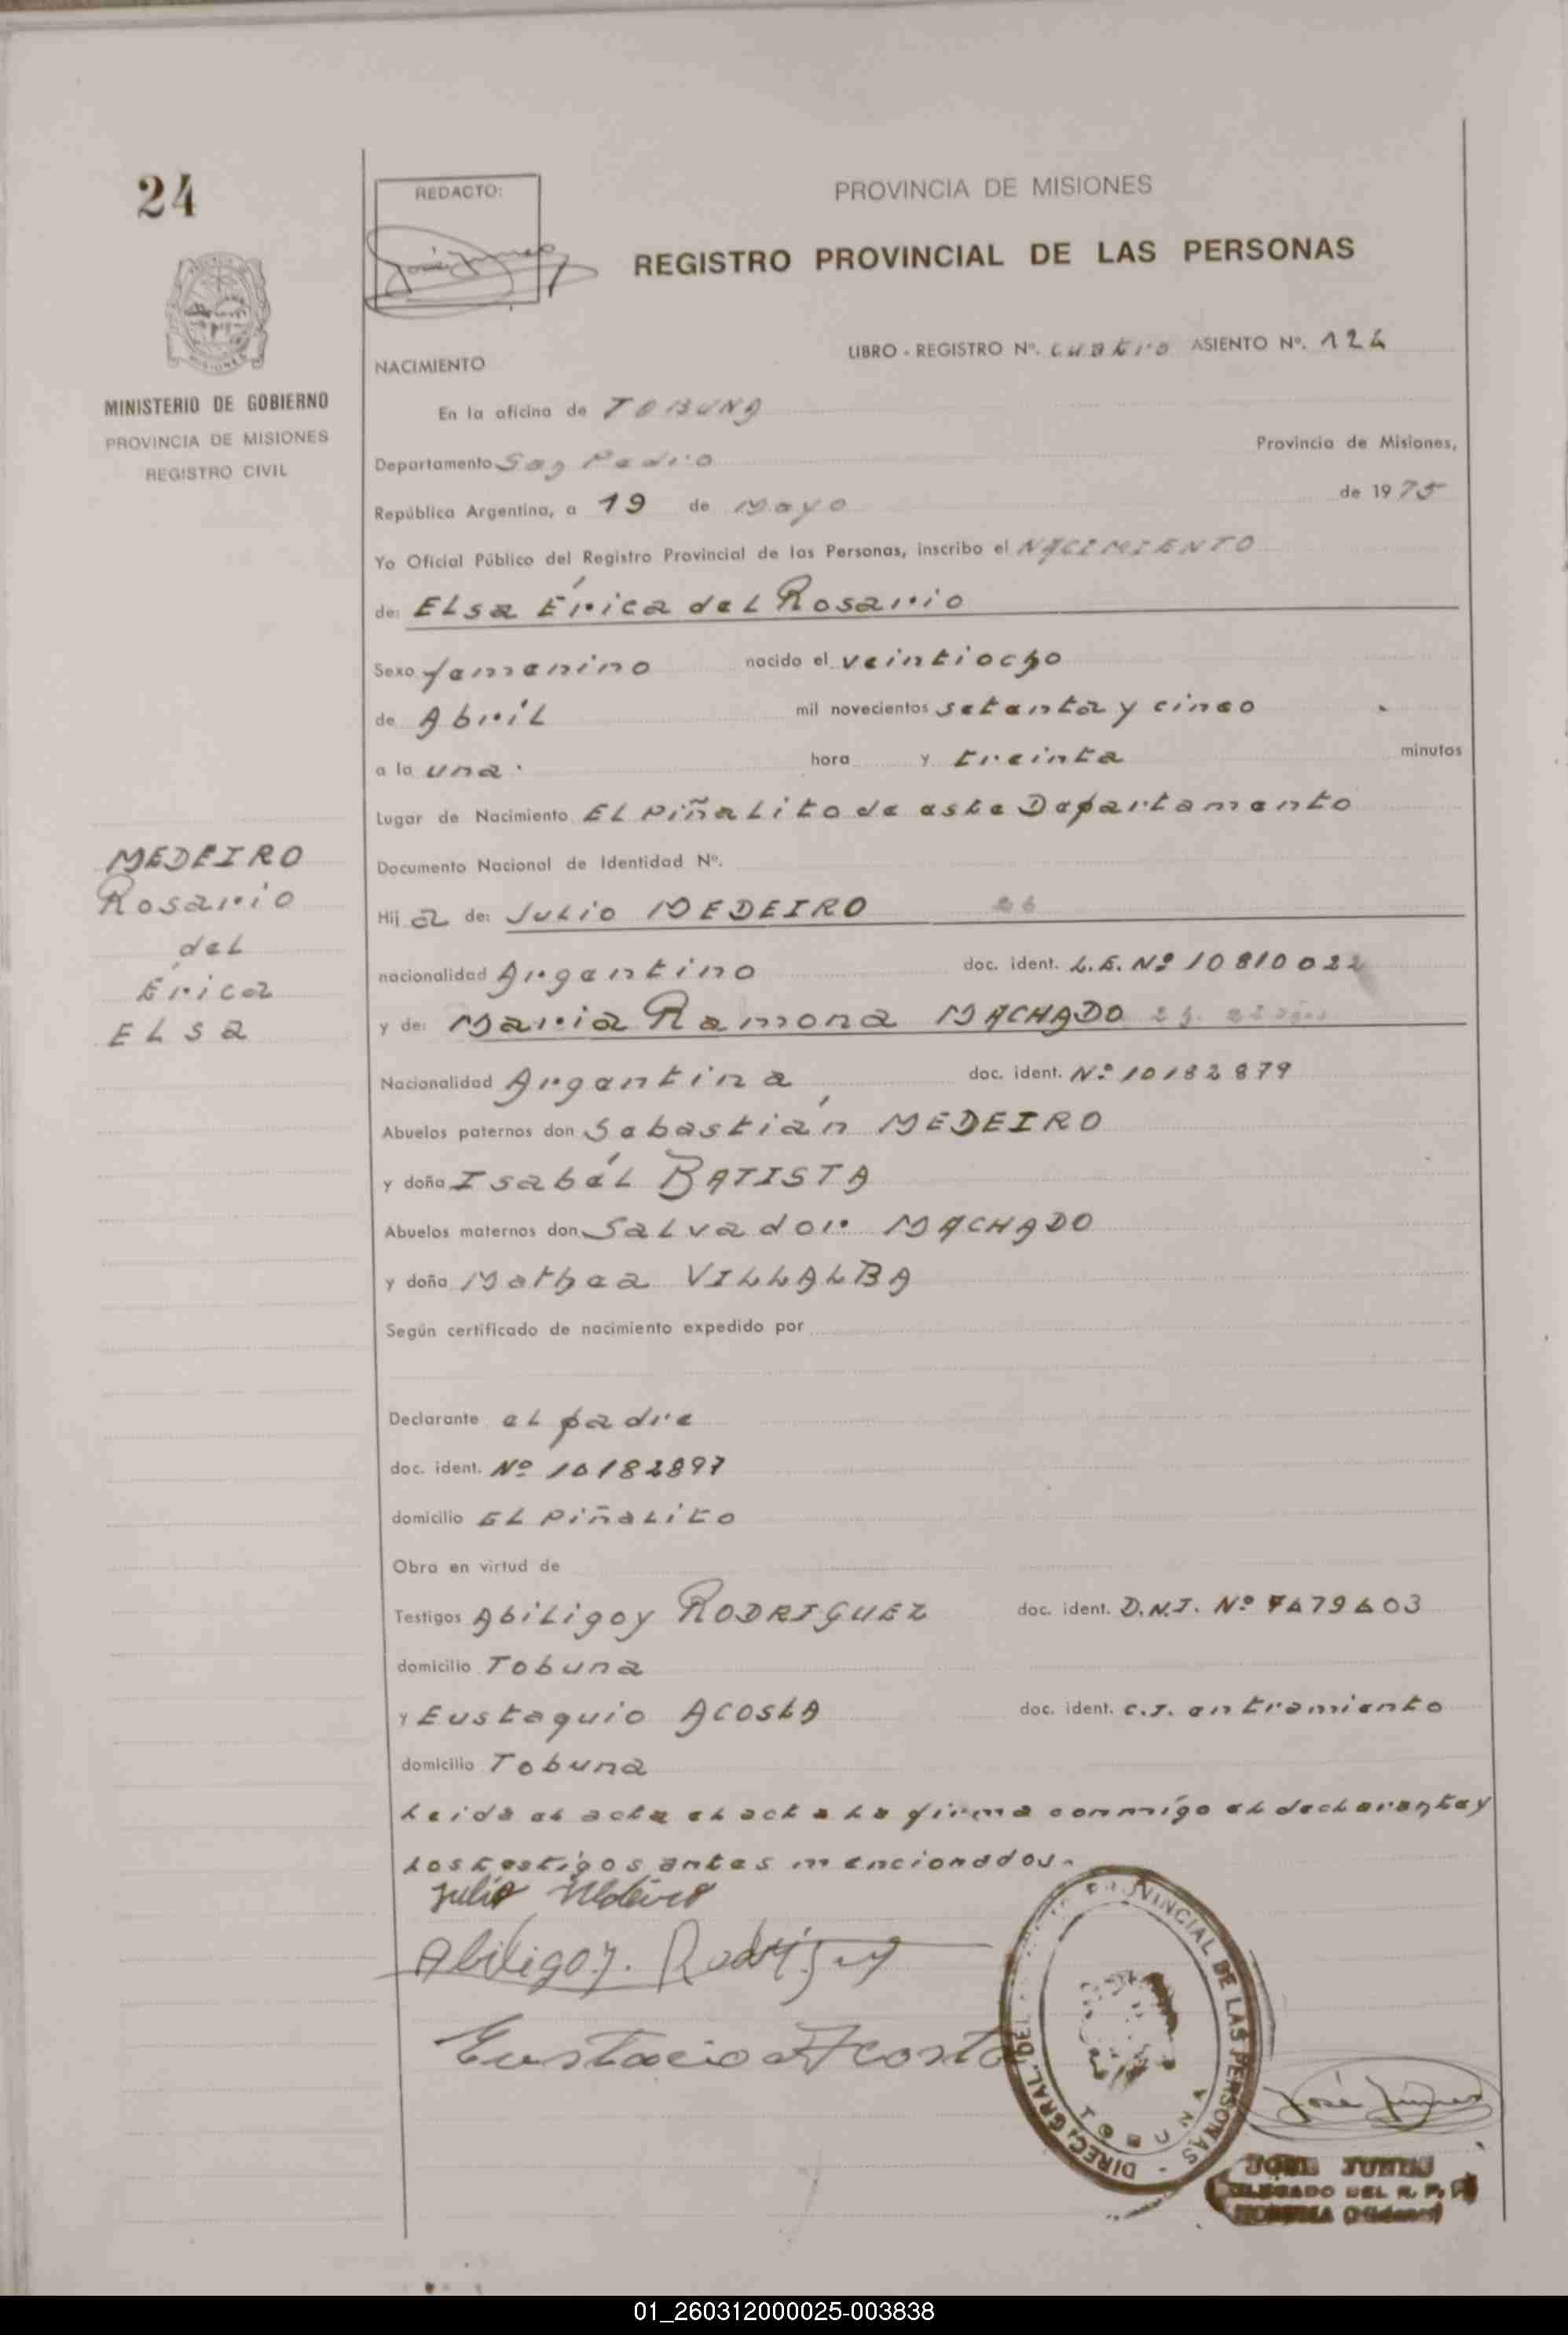 24
REDACTO:
PROVINCIA DE MISIONES
REGISTRO PROVINCIAL DE LAS PERSONAS
MINISTERIO DE GOBIERNO
PROVINCIA DE MISIONES
REGISTRO CIVIL
LIBRO - REGISTRO Nº. cuatro ASIENTO Nº. 124
NACIMIENTO
En la oficina de TOBUNA
Departamento San Pedro Provincia de Misiones,
República Argentina, a 19 de Mayo de 1975
Yo Oficial Público del Registro Provincial de las Personas, inscribo el NACIMIENTO
de: ELsa Érica del Rosario
Sexo femenino nacido el veintiocho
de Abril mil novecientos setenta y cinco
a la una hora y treinta minutos
Lugar de Nacimiento EL Piñalito de este Departamento
Documento Nacional de Identidad Nº.
Hij a de: Julio MEDEIRO 26
nacionalidad Argentino doc. ident. L.E. Nº 10810022
y de: Maria Ramona MACHADO
Nacionalidad Argentina doc. ident. Nº 10182879
Abuelos paternos don Sebastián MEDEIRO
y doña Isabél BATISTA
Abuelos maternos don Salvador MACHADO
y doña Mathea VILLALBA
Según certificado de nacimiento expedido por
Declarante el padre
doc. ident. Nº 10182897
domicilio EL Piñalito
Obra en virtud de
Testigos Abiligoy RODRIGUEZ doc. ident. D.N.I. Nº 7479603
domicilio Tobuna
y Eustaquio ACOSTA doc. ident. C.I. en tramiento
domicilio Tobuna
Leida el acta el acta la firma conmigo el declarante y
los testigos antes mencionados.
MEDEIRO
Rosario
del
Érica
ELsa
Julio Medeiro
Abiligoy. Rodriguez
Eustacio Acosta
DIREC. GRAL. DEL PROVINCIAL DE LAS PERSONAS
TOBUNA
José
JOSE
DELEGADO DEL R. P. P.
01_260312000025-003838